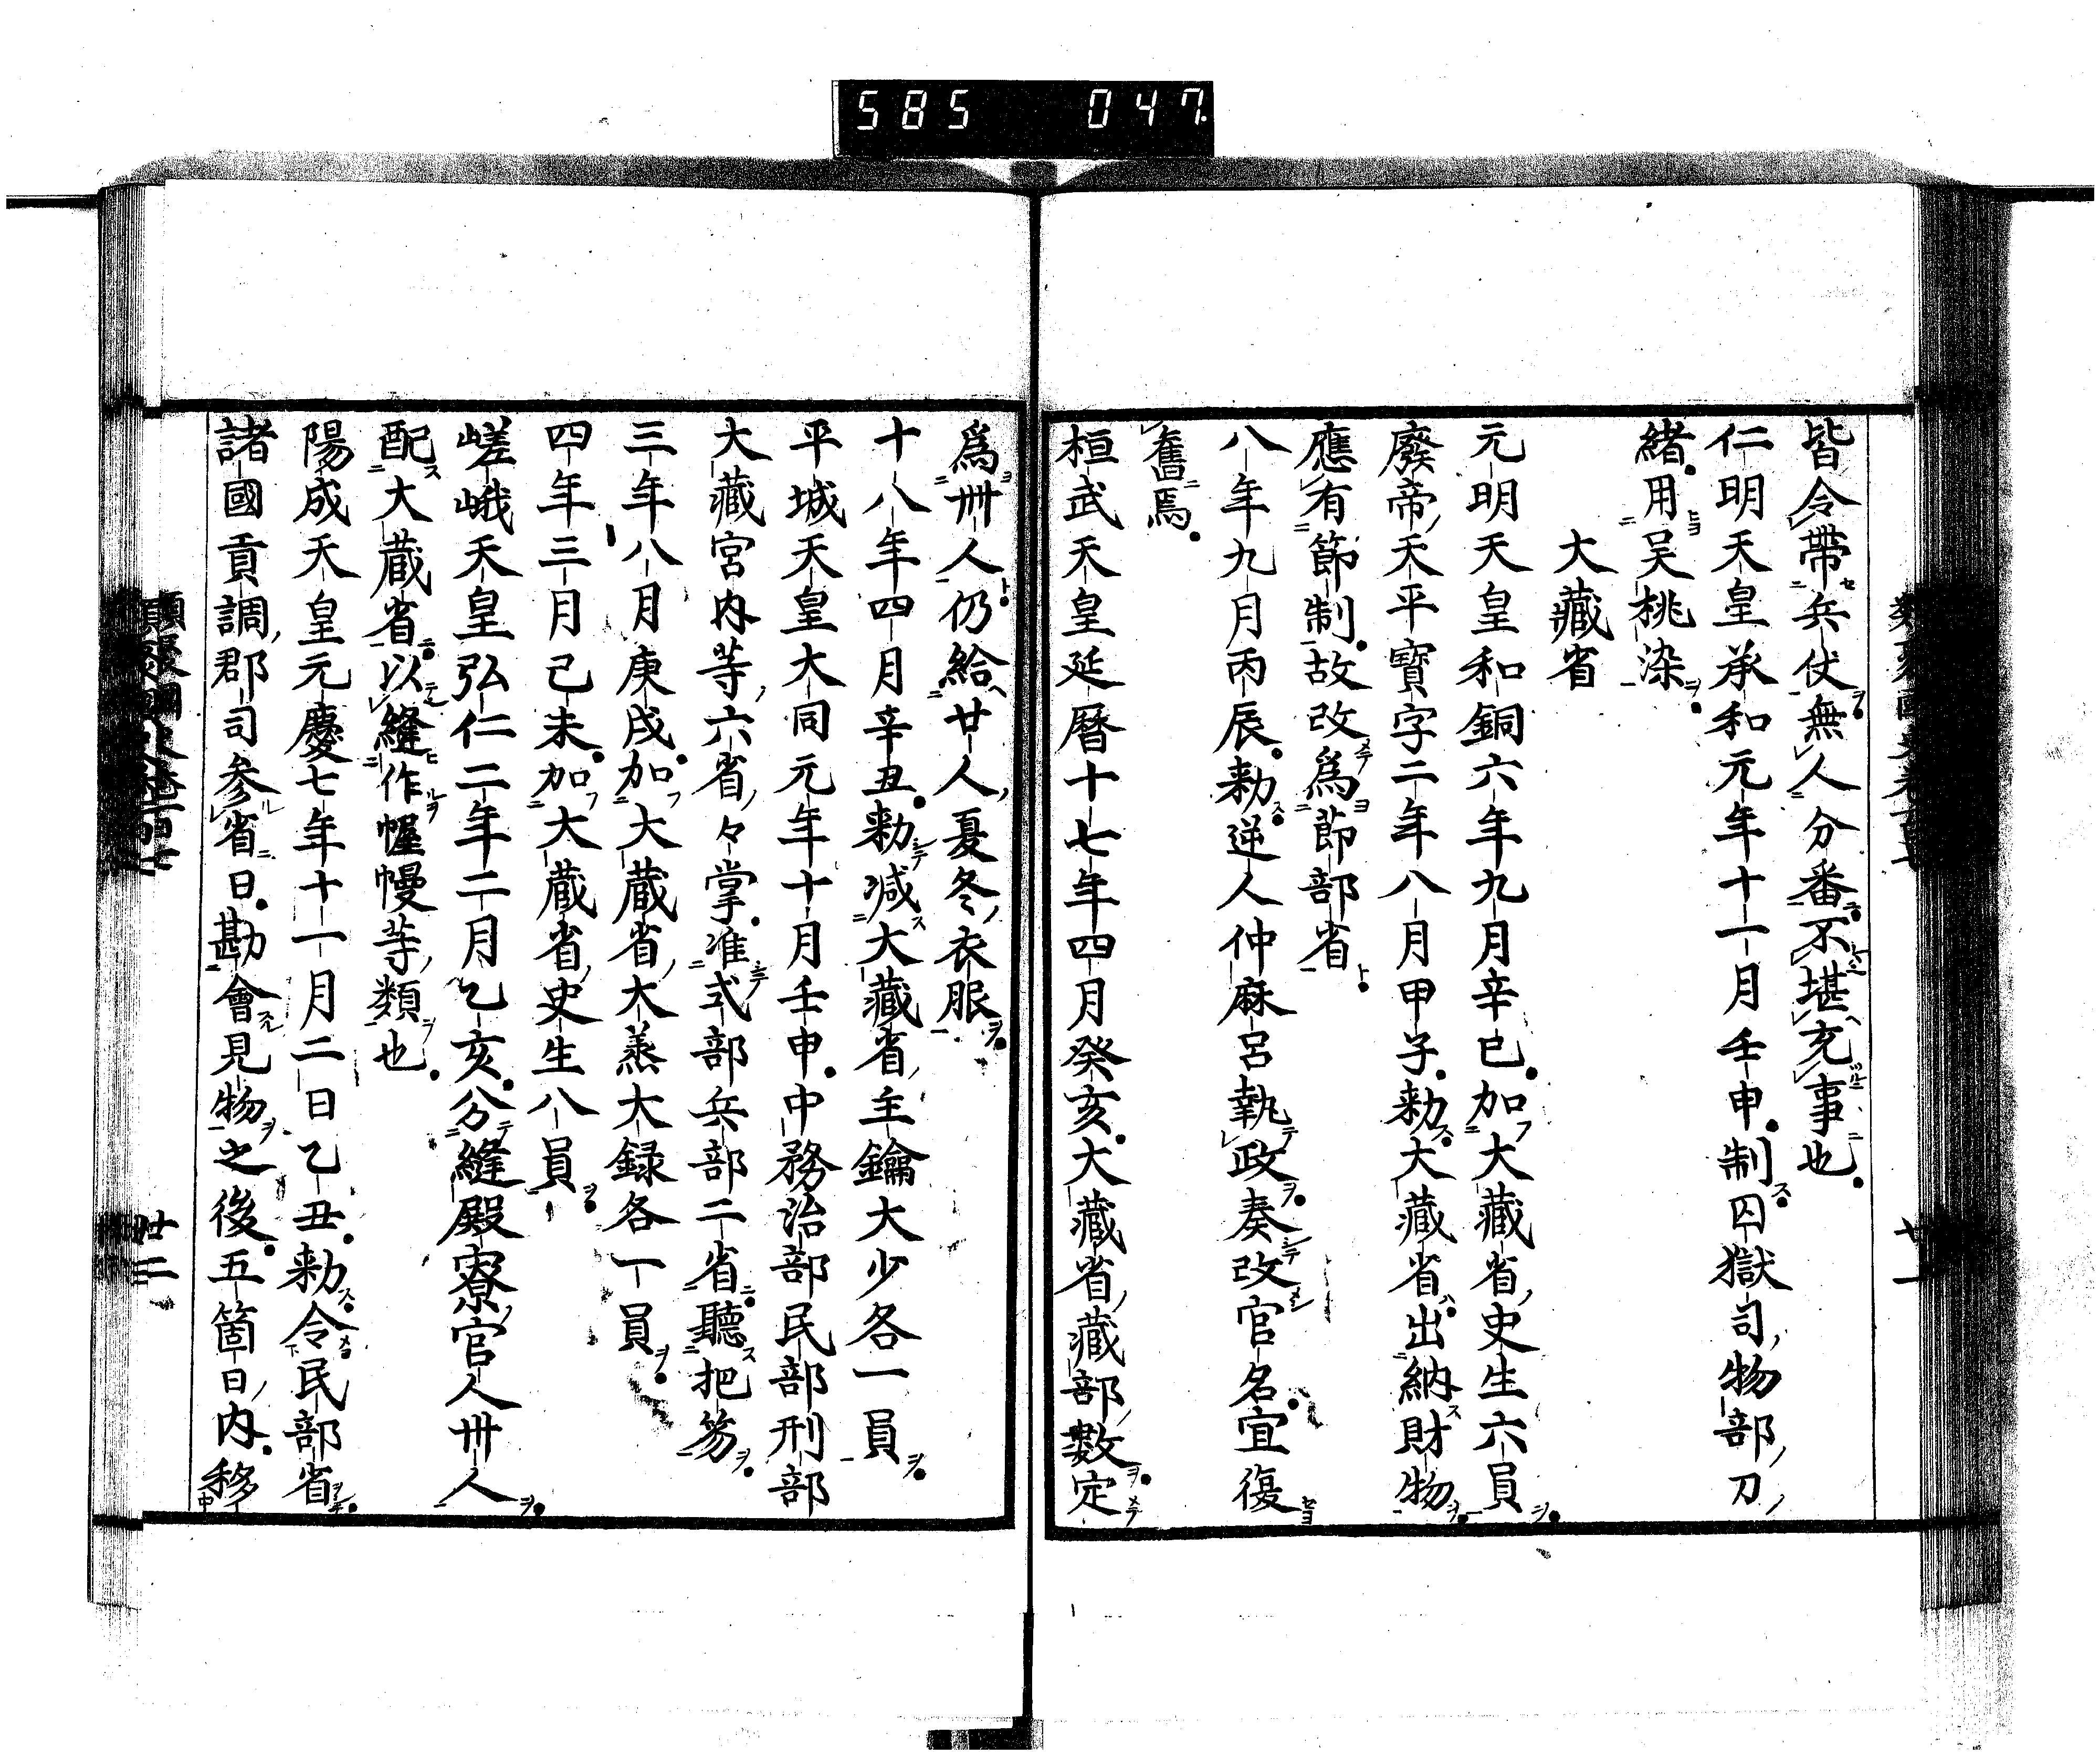 585 047
皆令帶兵仗無人分番不堪充事也
仁明天皇承和元年十一月壬申制囚獄司物部刀
緒用吴桃染
大藏省
元明天皇和銅六年九月辛巳加大藏省史生六員
廢帝天平寶字二年八月甲子勅大藏省出納財物
應有節制故改爲節部省
八年九月丙辰勅逆人仲麻呂執政奏改官名宜復
舊焉
桓武天皇延曆十七年四月癸亥大藏省藏部數定
爲卌人仍給廿人夏冬衣服
十八年四月辛丑勅減大藏省主鑰大少各一員
平城天皇大同元年十月壬申中務治部民部刑部
大藏宮内等六省々掌准式部兵部二省聽把笏
三年八月庚戌加大蔵省大烝大録各一員
四年三月己未加大蔵省史生八員
嵯峨天皇弘仁二年二月乙亥分縫殿寮官人卅人
配大蔵省以縫作幄幔等類也
陽成天皇元慶七年十一月二日乙丑勅令民部省
諸國貢調郡司参省日勘會見物之後五箇日内移
廿二